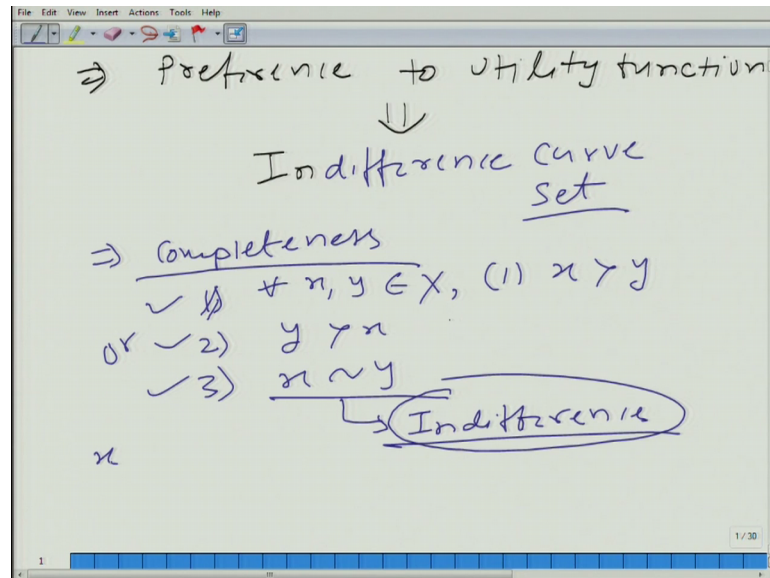 File Edit View Insert Actions Tools Help
⇒ Preference to utility function
⇓
Indifference curve
set
⇒ Completeness
∀ x, y ∈ X, (1) x ≻ y
or 2) y ≻ x
3) x ~ y
Indifference
x
1/30
1